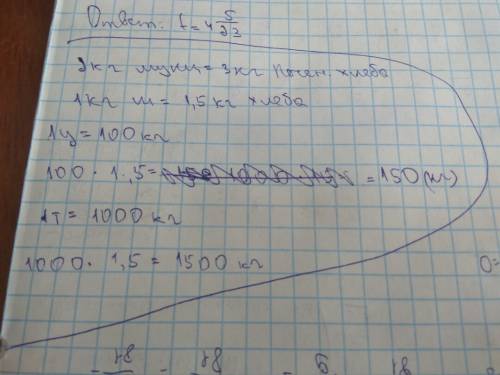 Ответ: t = 4 5/23
2кг муки = 3кг печен. хлеба
1кг м = 1,5 кг хлеба
1ц = 100 кг
100 · 1,5 = = 150 (кг)
1т = 1000 кг
1000 · 1,5 = 1500 кг
0=